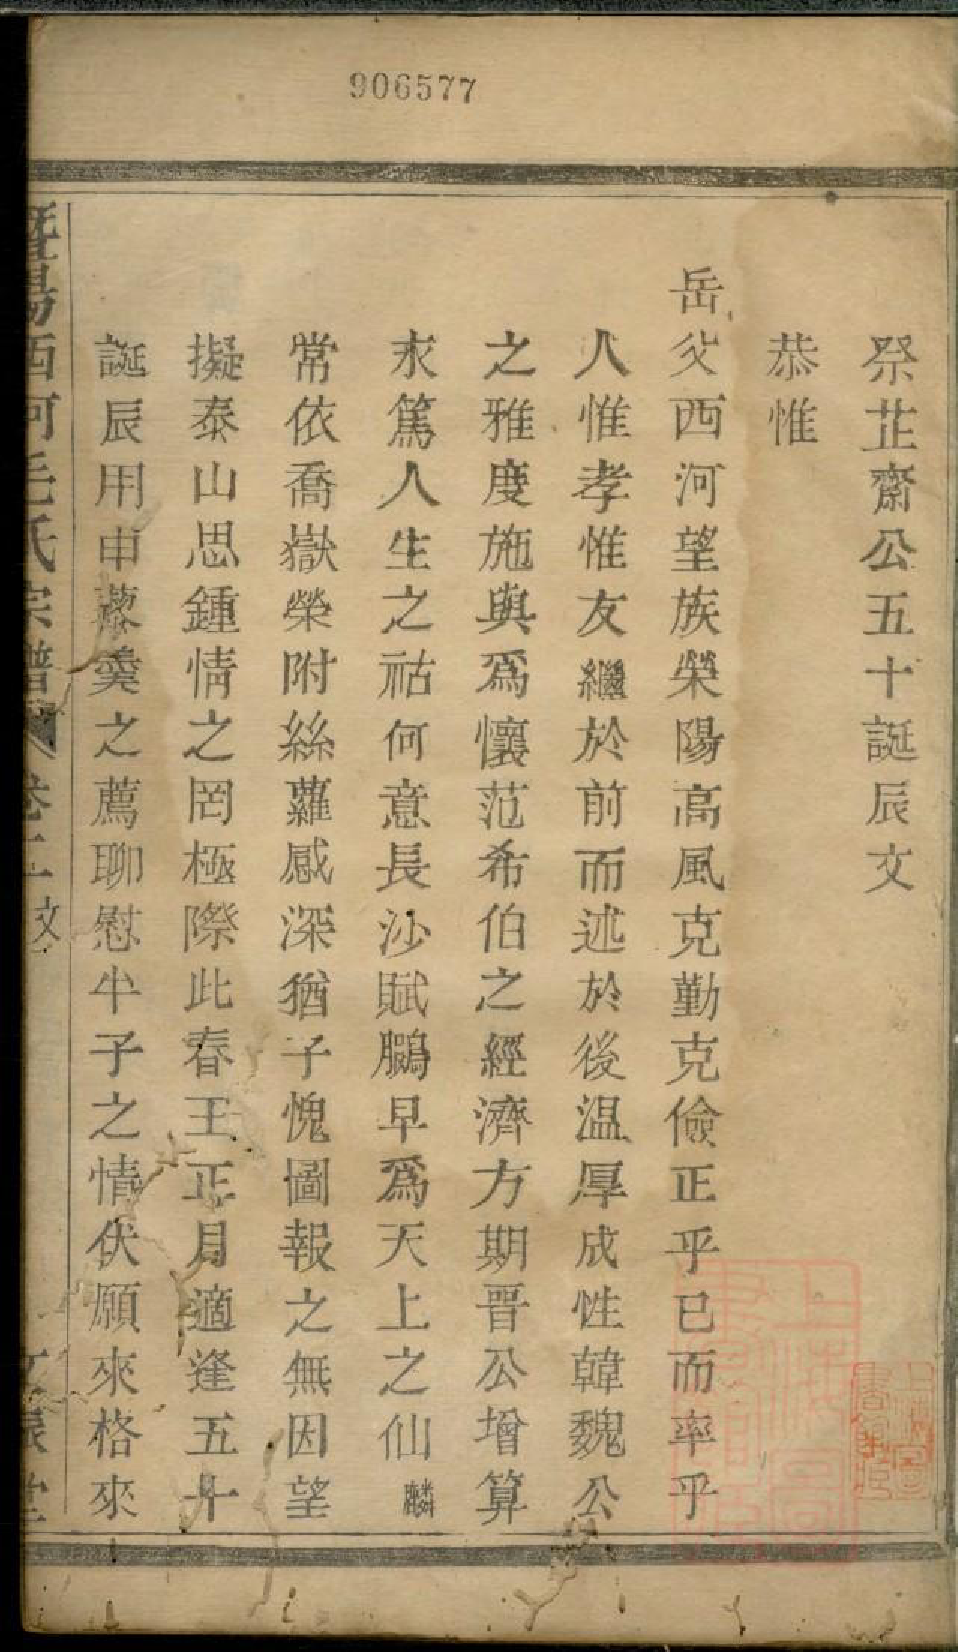 906577
祭芷齋公五十誕辰文
恭惟
岳父西河望族榮陽高風克勤克儉正乎已而率乎
人惟孝惟友繼於前而述於後温厚成性韓魏公
之雅度施與爲懷范希伯之經濟方期晋公增算
永篤人生之祜何意長沙賦鵬早爲天上之仙麟
常依喬嶽榮附絲蘿感深猶子愧圖報之無因望
擬泰山思鍾情之罔極際此春王正月適逢五十
誕辰用申藜羹之薦聊慰半子之情伏願來格來
暨陽西河毛氏宗譜 卷二 文